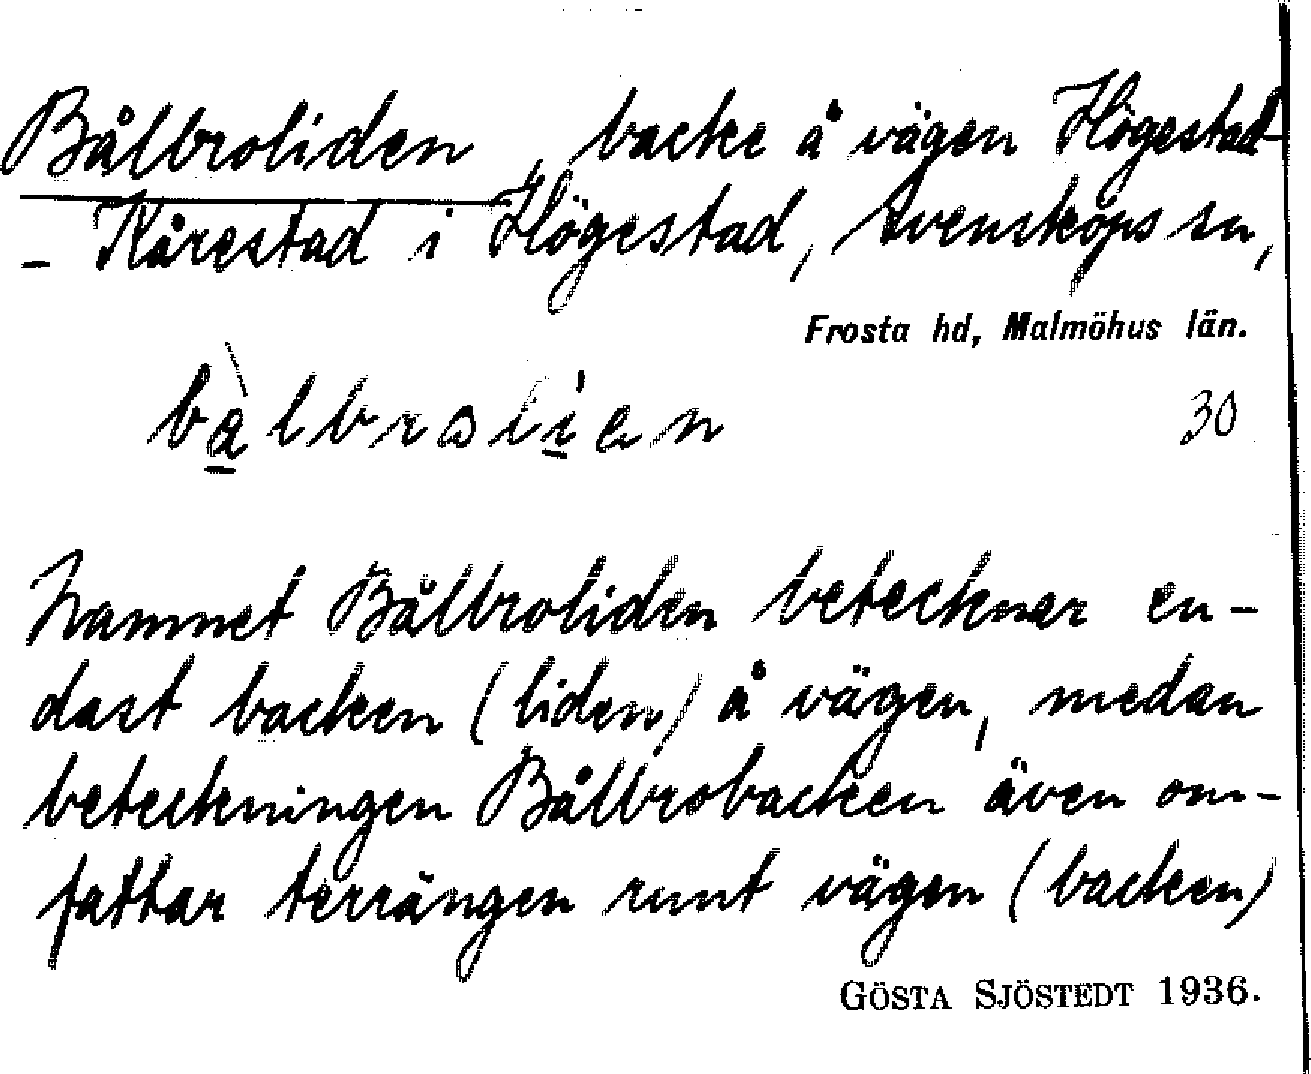 Bålbroliden, backe å vägen Högestad-
- Kårestad i Högestad, Svensköps sn,
Frosta hd, Malmöhus län.
30
Namnet Bålbroliden betecknar en-
dast backen (liden) å vägen, medan
beteckningen Bålbrobacken även om-
fattar terrängen runt vägen (backen)
GÖSTA SJÖSTEDT 1936.